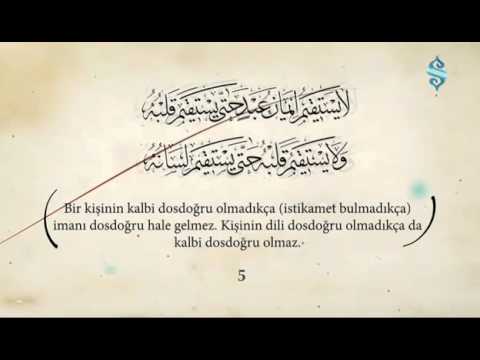 لَا يَسْتَقِيمُ إِيمَانُ عَبْدٍ حَتَّى يَسْتَقِيمَ قَلْبُهُ
وَلَا يَسْتَقِيمُ قَلْبُهُ حَتَّى يَسْتَقِيمَ لِسَانُهُ
Bir kişinin kalbi dosdoğru olmadıkça (istikamet bulmadıkça)
imanı dosdoğru hale gelmez. Kişinin dili dosdoğru olmadıkça da
kalbi dosdoğru olmaz.
5